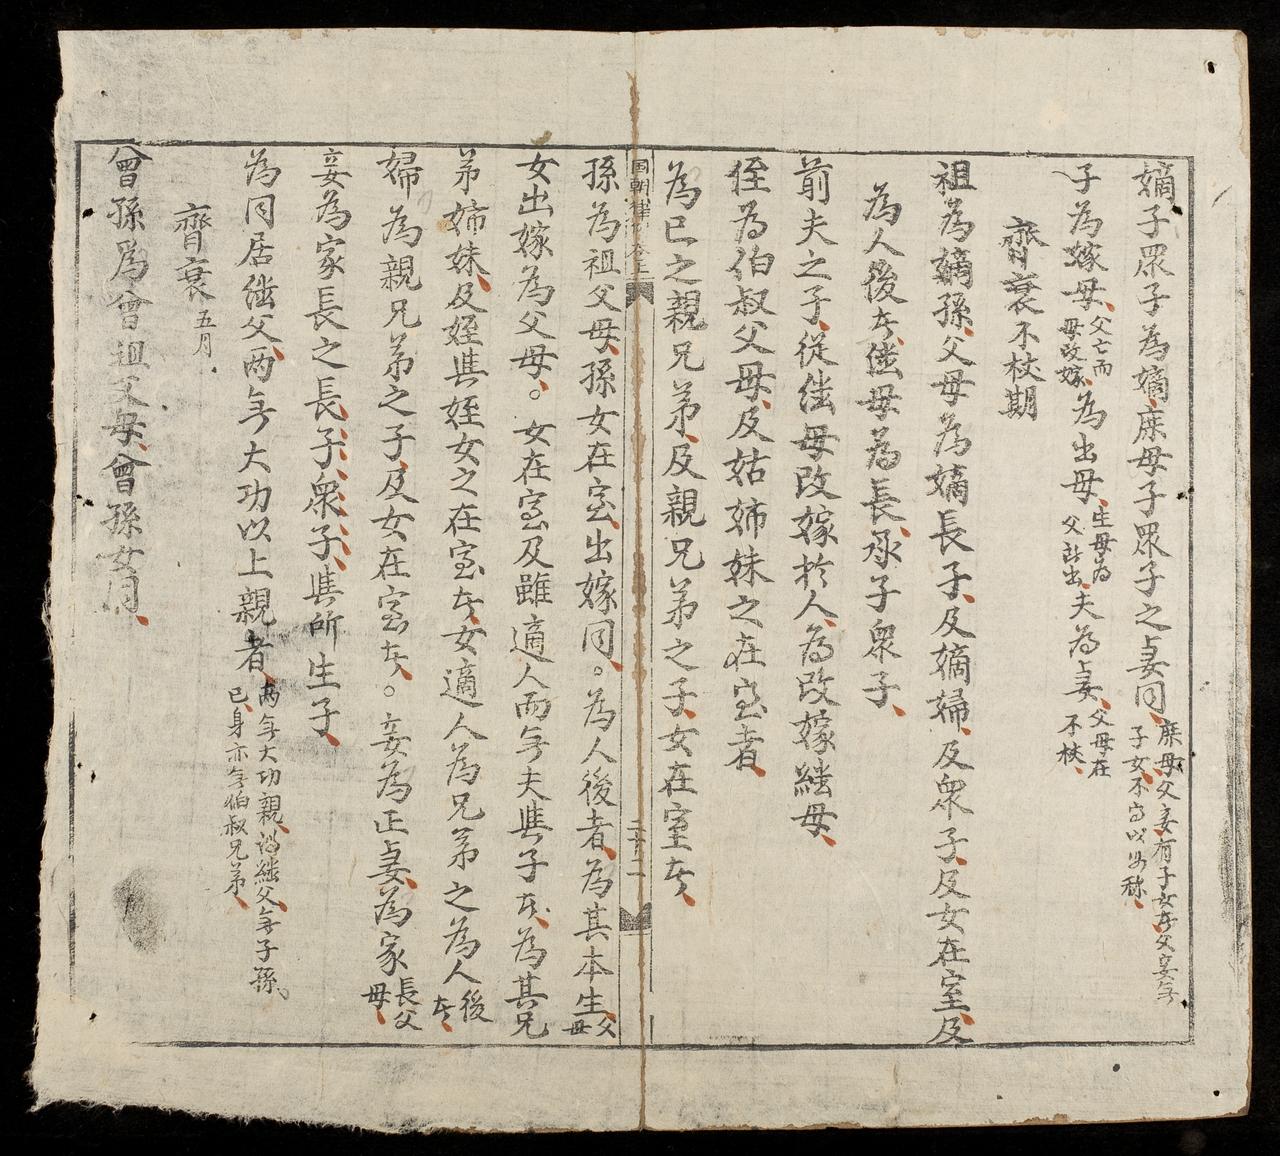 嫡子眾子為嫡庶母子眾子之妻同庶母父妾有子女者父妾無子女不可以母稱
子為嫁母父亡而母改嫁為出母生母為父所出夫為妻父母在不杖
齊衰不杖期
祖為嫡孫父母為嫡長子及嫡婦及眾子及女在室及
為人後者繼母為長承子眾子
前夫之子從继母改嫁於人為改嫁繼母
侄為伯叔父母及姑姊妹之在室者
為己之親兄弟及親兄弟之子女在室者
国朝律卷三
二十二
孫為祖父母孫女在室出嫁同。為人後者為其本生父母
女出嫁為父母。女在室及雖適人而無夫與子者為其兄
弟姊妹及姪與姪女之在室者女適人為兄弟之為人後者
婦為親兄弟之子及女在室者。妾為正妻為家長父母
妾為家長之長子眾子與所生子
為同居继父兩無大功以上親者兩無大功親謂繼父無子孫己身亦無伯叔兄弟
齊衰五月
曾孫為曾祖父母曾孫女同